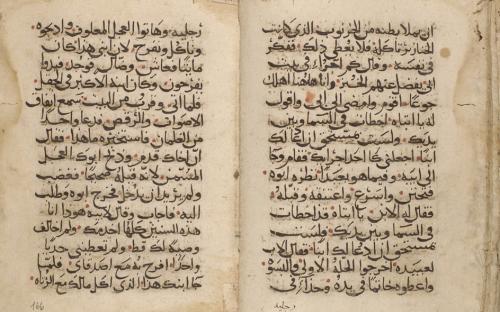 ان يملا بطنه من الخرنوب الذي كانت
الخنازير تاكله فلا يعطي ذلك ففكر
في نفسه وقال كم اجراء في بيت
ابي يفضل عنهم الخبز وانا هاهنا اهلك
جوعا اقوم وامضي الى ابي واقول
له يا ابتاه اخطات في السما وبين
يديك ولست مستحق ان ادعا لك
ابنا اجعلني كاحد اجراك فقام وجا
الى ابيه وفيما هو بعيدا نظره ابوه
فتحنن واسرع واعتنقه وقبله
فقال له الابن يا ابتاه قد اخطات
في السما وبين يديك فلست
مستحق ان ادعا لك ابنا فقال الاب
لعبيده اخرجوا الحلة الاولى والبسوه
واعطوه خاتما في يده وحذاء في
رجليه
رجليه وهاتوا العجل المعلوف واذبحوه
وناكل ونفرح لان ابني هذا كان
مايتا فعاش وضال فوجد فبدوا
يفرحون وكان ابنه الاكبر في الحقل
فلما اتى وقرب من البيت سمع اتفاق
الاصوات والرقص فدعا واحدا
من الغلمان فاستخبره ما هذا فقال
ان اخاك قدم وذبح ابوك العجل
المسمن لانه قبله صحيحا فغضب
ولم يريد ان يدخل فخرج ابوه وطلب
اليه فاجاب وقال لابيه هوذا انا
هذه السنين كلها اخدمك ولم اخالف
وصيتك قط ولم تعطني جديا
واحدا افرح به مع اصدقاي فلما
جا ابنك هذا الذي اكل مالك مع الزناه
166